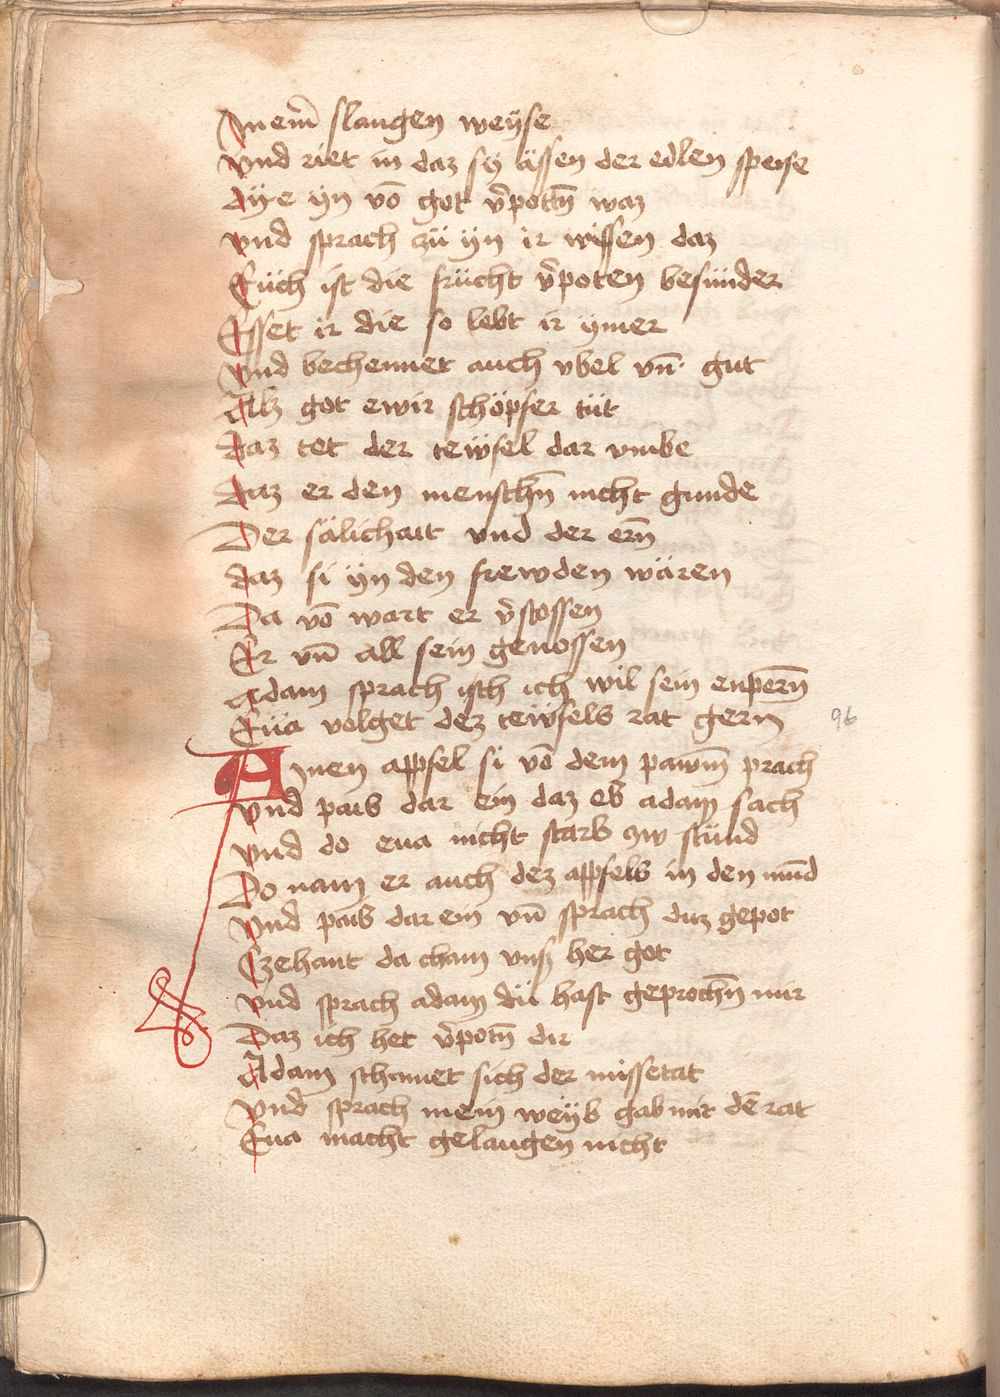 In einē slangen weyse
Vnd riet in daz sÿ ässen der edlen speise
Dÿe ÿn võ got v̄potñ waz
Vnd sprach zü ÿn ir wissen daz
Eüch ist die frücht v̄poten besünder
Esset ir die so lebt ir ymer
Vnd bechennet auch vbel vñ gut
Alz got ewir schöpfer tüt
Daz tet der tewfel dar vmbe
Daz er den menschñ nicht gunde
Der sälichait vnd der erñ
Daz si ÿn den frewden wären
Da võ wart er v̄stossen
Er vñ all sein genossen
Adam sprach isch ich wil sein enperñ
Eüa volget dez tewfels rat gern
96
Ainen appfel si võ dem pawm̄ prach
Vnd pais dar ein daz es adam sach
Vnd do eua nicht starb zw stünd
Do nam er auch dez appfels in den mūd
Vnd pais dar ein vñ sprach daz gepot
Czehant da cham vnsz her got
Vnd sprach adam dü hast geprochñ mir
Daz ich het v̄potñ dir
Adam schamet sich der missetat
Vnd sprach mein weyb gab mir dē rat
Eua macht gelaugen nicht